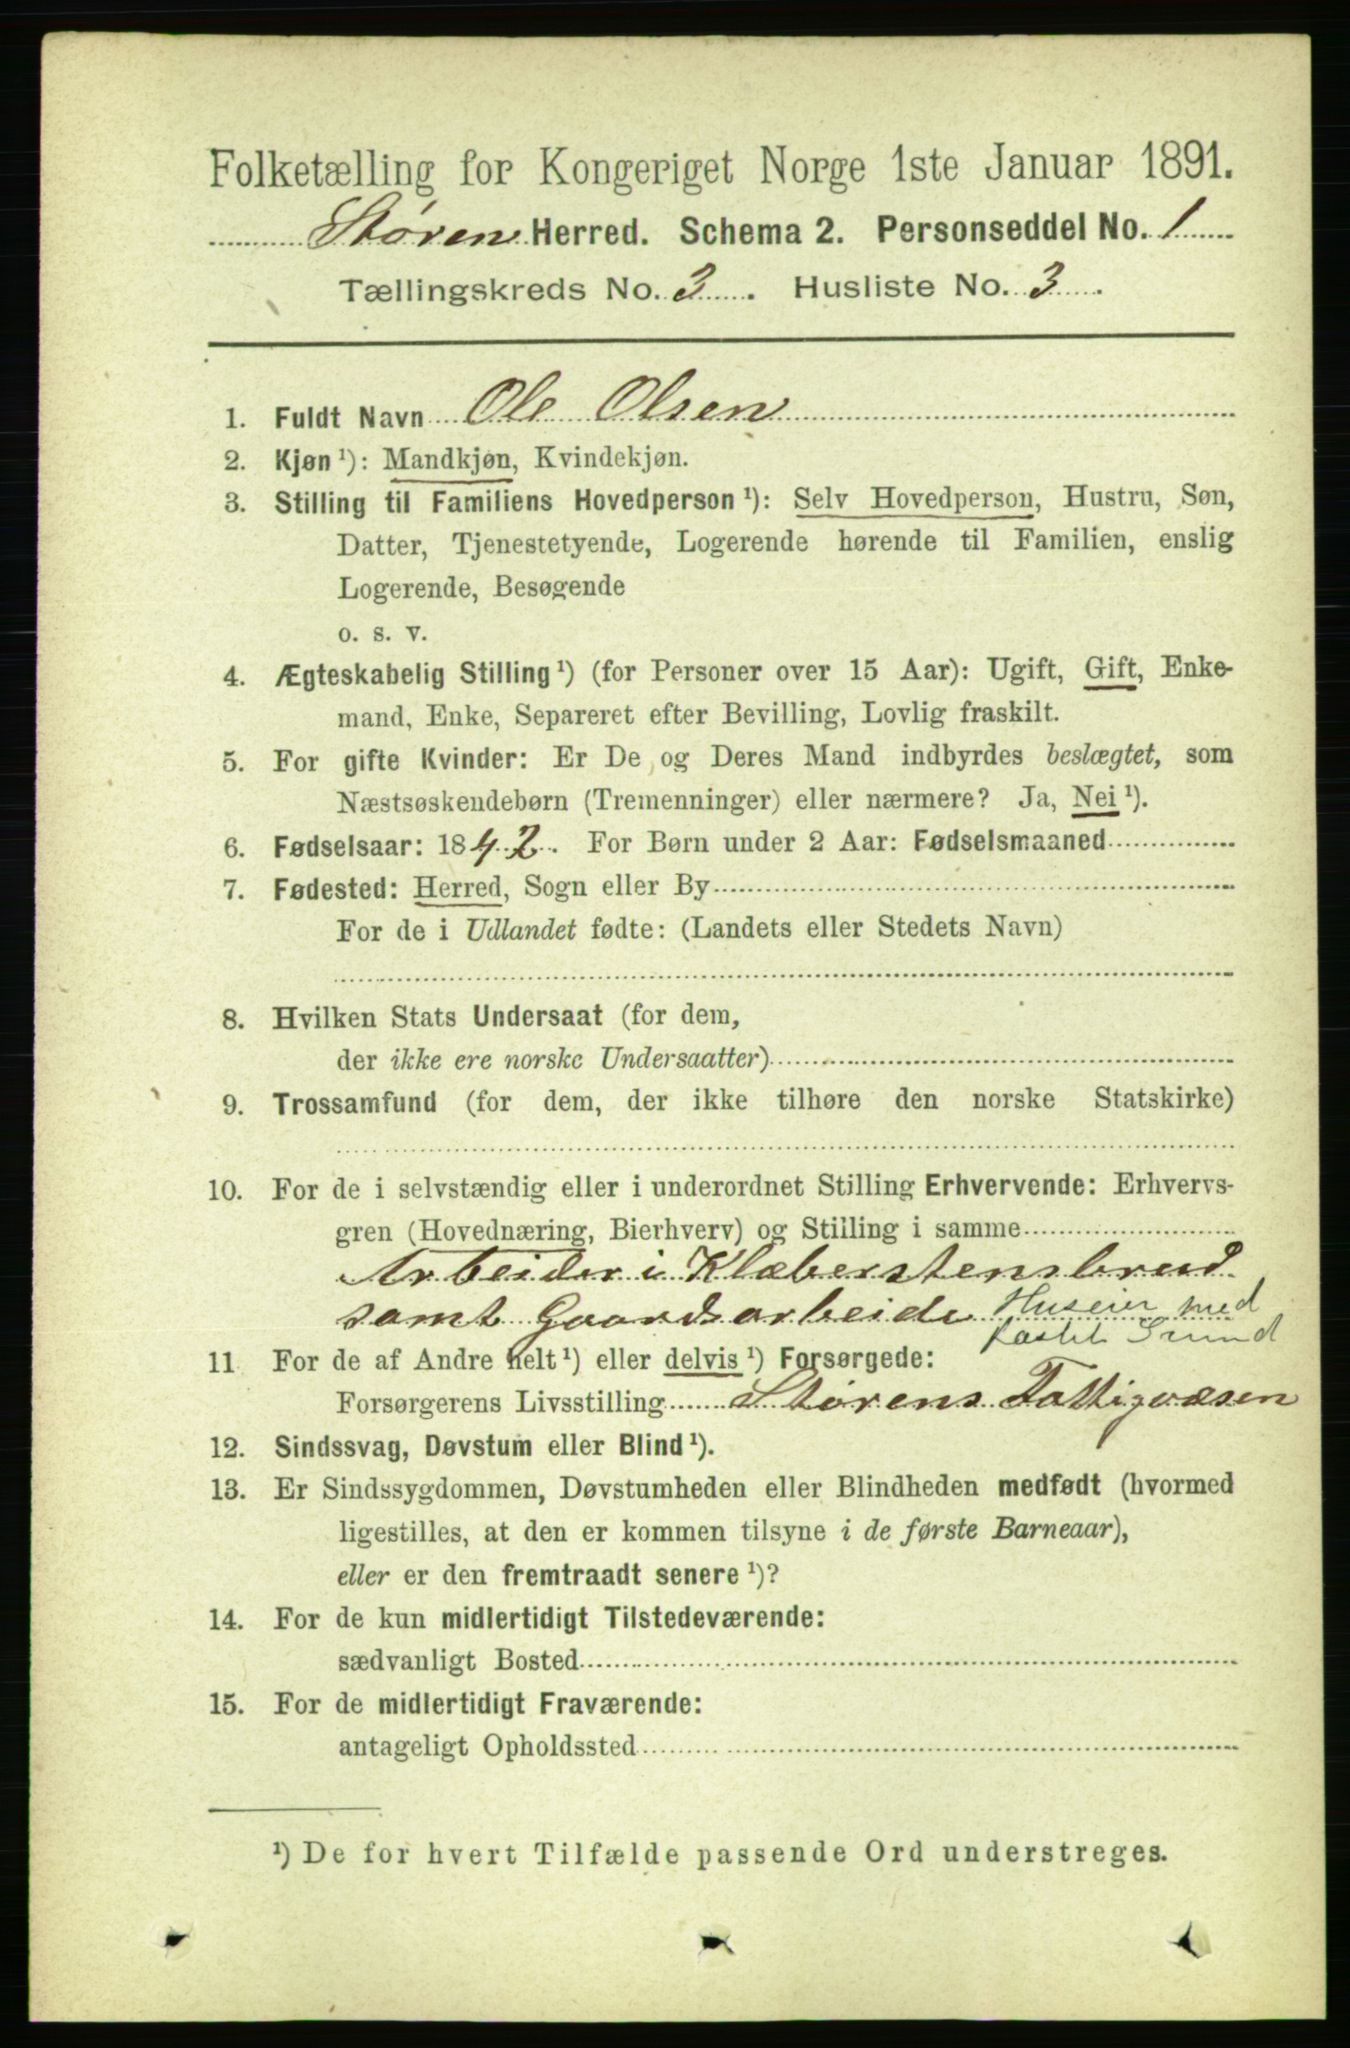 Folketælling for Kongeriget Norge 1ste Januar 1891.
Støren Herred. Schema 2. Personseddel No. 1
Tællingskreds No. 3. Husliste No. 3.
1. Fuldt Navn Ole Olsen
2. Kjøn ¹): Mandkjøn, Kvindekjøn.
3. Stilling til Familiens Hovedperson ¹): Selv Hovedperson, Hustru, Søn,
Datter, Tjenestetyende, Logerende hørende til Familien, enslig
Logerende, Besøgende
o. s. v.
4. Ægteskabelig Stilling ¹) (for Personer over 15 Aar): Ugift, Gift, Enke-
mand, Enke, Separeret efter Bevilling, Lovlig fraskilt.
5. For gifte Kvinder: Er De og Deres Mand indbyrdes beslægtet, som
Næstsøskendebørn (Tremenninger) eller nærmere? Ja, Nei ¹).
6. Fødselsaar: 1842. For Børn under 2 Aar: Fødselsmaaned
7. Fødested: Herred, Sogn eller By
For de i Udlandet fødte: (Landets eller Stedets Navn)
8. Hvilken Stats Undersaat (for dem,
der ikke ere norske Undersaatter)
9. Trossamfund (for dem, der ikke tilhøre den norske Statskirke)
10. For de i selvstændig eller i underordnet Stilling Erhvervende: Erhvervs-
gren (Hovednæring, Bierhverv) og Stilling i samme
Arbeider i Klæberstensbrud
samt Gaardsarbeide Huseier med
fæstet Grund
11 For de af Andre helt ¹) eller delvis ¹) Forsørgede:
Forsørgerens Livsstilling Størens Fattigvæsen
12. Sindssvag, Døvstum eller Blind ¹).
13. Er Sindssygdommen, Døvstumheden eller Blindheden medfødt (hvormed
ligestilles, at den er kommen tilsyne i de første Barneaar),
eller er den fremtraadt senere ¹)?
14. For de kun midlertidigt Tilstedeværende:
sædvanligt Bosted
15. For de midlertidigt Fraværende:
antageligt Opholdssted
¹) De for hvert Tilfælde passende Ord understreges.